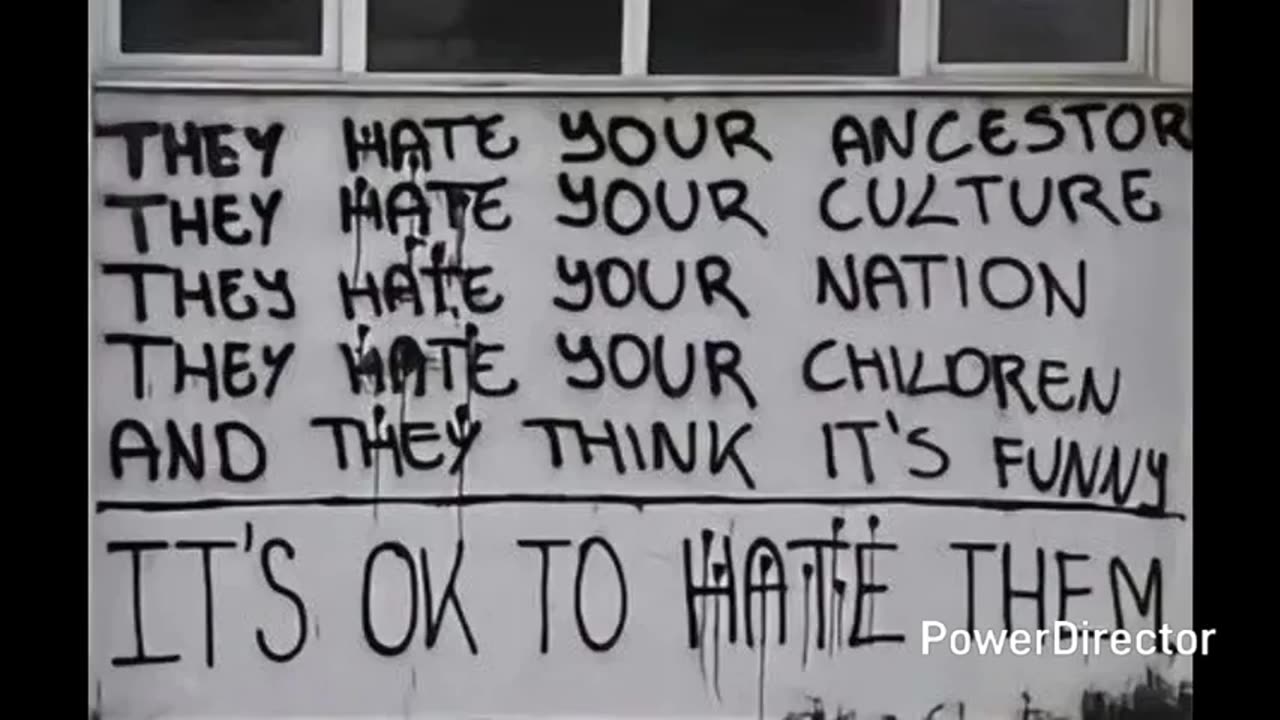 THEY HATE YOUR ANCESTOR
THEY HATE YOUR CULTURE
THEY HATE YOUR NATION
THEY HATE YOUR CHILDREN
AND THEY THINK IT'S FUNNY
IT'S OK TO HATE THEM
PowerDirector